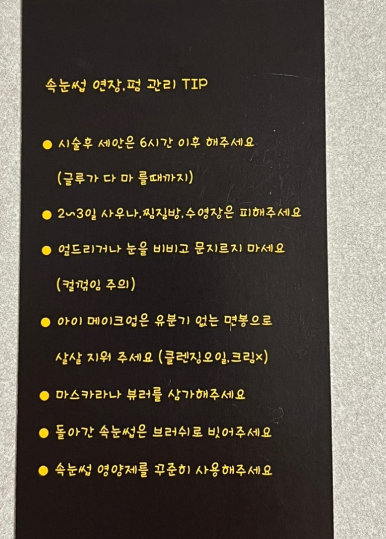 속눈썹 연장,펌 관리 TIP
● 시술후 세안은 6시간 이후 해주세요
(글루가 다 마 를때까지)
● 2~3일 사우나,찜질방,수영장은 피해주세요
● 엎드리거나 눈을 비비고 문지르지 마세요
(컬꺾임 주의)
● 아이 메이크업은 유분기 없는 면봉으로
살살 지워 주세요 (클렌징오일,크림x)
● 마스카라나 뷰러를 삼가해주세요
● 돌아간 속눈썹은 브러쉬로 빗어주세요
● 속눈썹 영양제를 꾸준히 사용해주세요